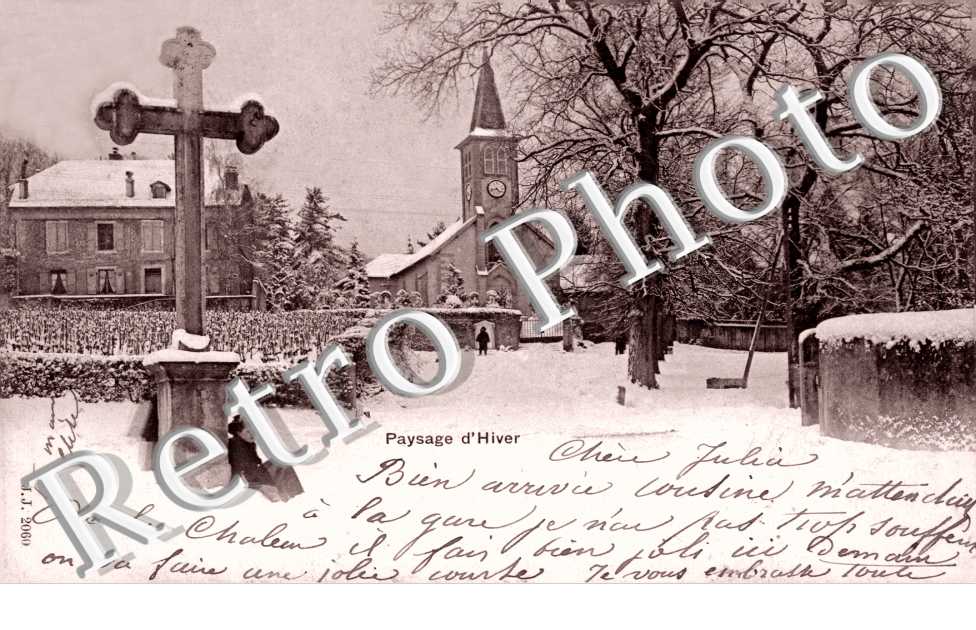 Retro Photo
Paysage d'Hiver
J.J. 2060
Chère Julia
Bien arrivie cousine m'attendait
à la gare je n'ai pas trop souffert
de la Chaleur il fais bien joli ici Demain
on va faire une jolie course Je vous embrasse Toute